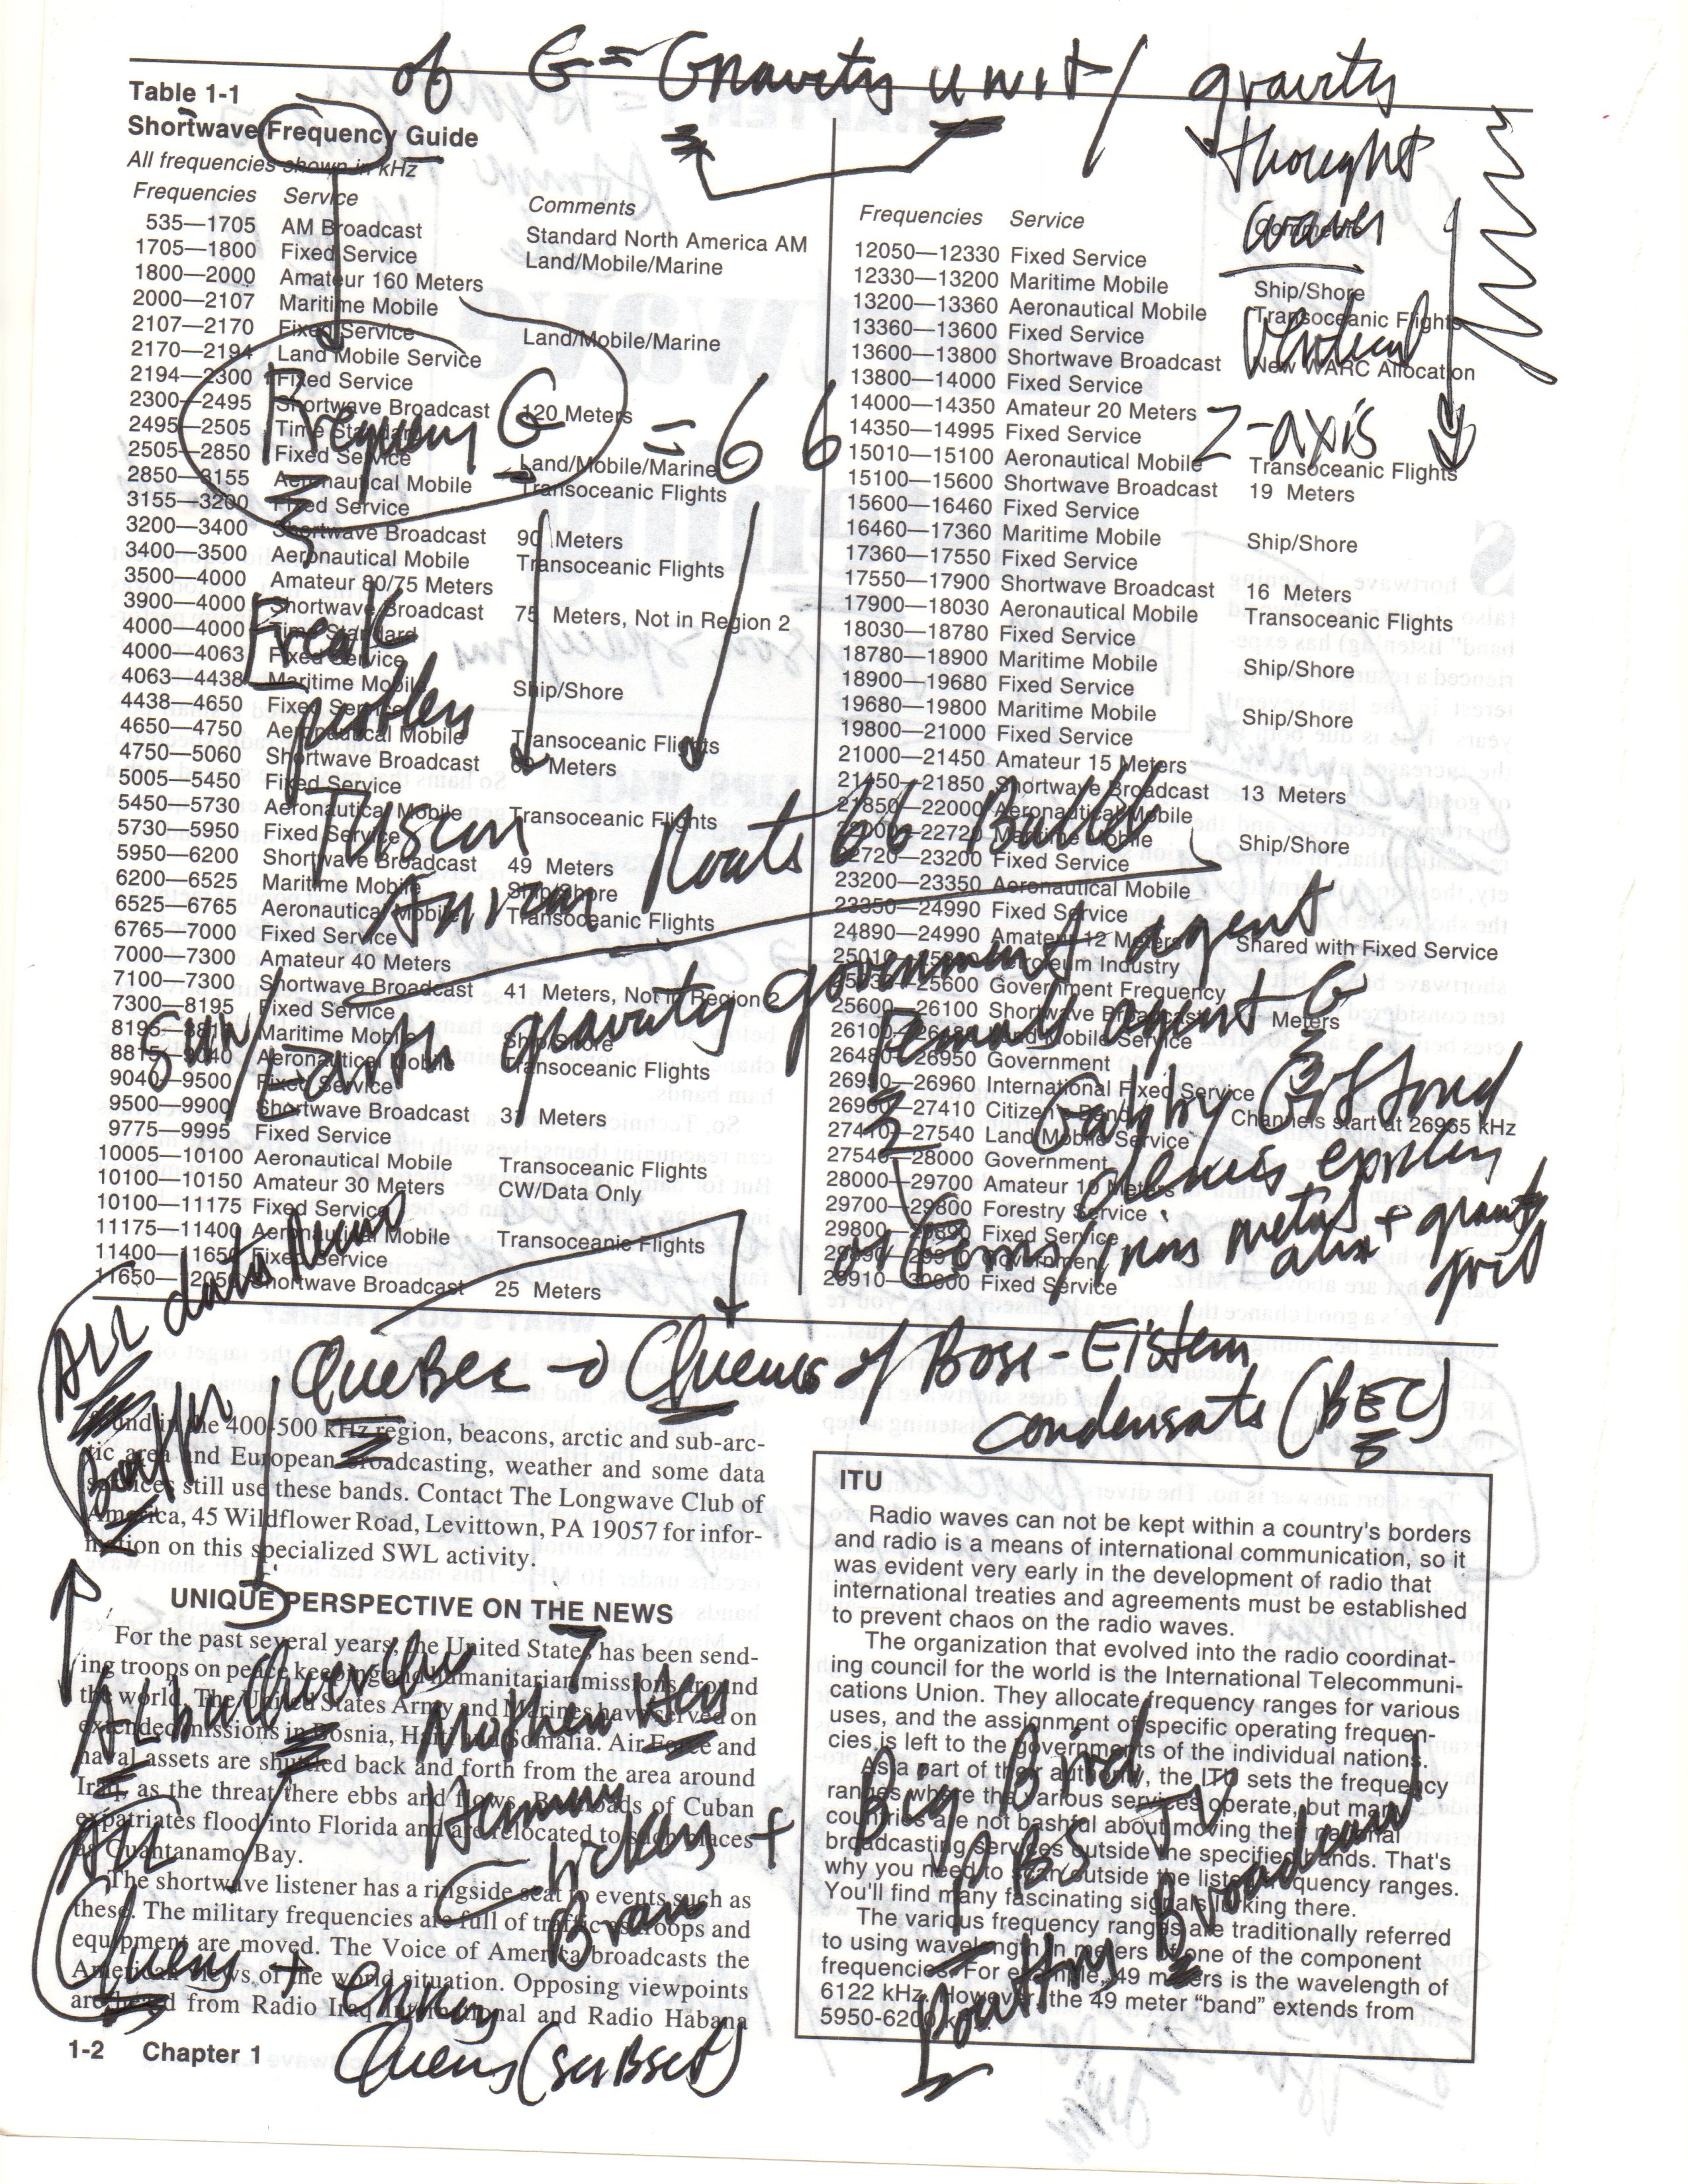 of G = Gravity unit / gravity
thought
waves
Vertical
Z-axis
Table 1-1
Shortwave Frequency Guide
All frequencies shown in kHz
Frequencies Service Comments
535—1705 AM Broadcast Standard North America AM
1705—1800 Fixed Service Land/Mobile/Marine
1800—2000 Amateur 160 Meters
2000—2107 Maritime Mobile
2107—2170 Fixed Service Land/Mobile/Marine
2170—2194 Land Mobile Service
2194—2300 Fixed Service
2300—2495 Shortwave Broadcast 120 Meters
2495—2505 Time Standard
2505—2850 Fixed Service Land/Mobile/Marine
2850—3155 Aeronautical Mobile Transoceanic Flights
3155—3200 Fixed Service
3200—3400 Shortwave Broadcast 90 Meters
3400—3500 Aeronautical Mobile Transoceanic Flights
3500—4000 Amateur 80/75 Meters
3900—4000 Shortwave Broadcast 75 Meters, Not in Region 2
4000—4000 Time Standard
4000—4063 Fixed Service
4063—4438 Maritime Mobile Ship/Shore
4438—4650 Fixed Service
4650—4750 Aeronautical Mobile Transoceanic Flights
4750—5060 Shortwave Broadcast Meters
5005—5450 Fixed Service
5450—5730 Aeronautical Mobile Transoceanic Flights
5730—5950 Fixed Service
5950—6200 Shortwave Broadcast 49 Meters
6200—6525 Maritime Mobile Ship/Shore
6525—6765 Aeronautical Mobile Transoceanic Flights
6765—7000 Fixed Service
7000—7300 Amateur 40 Meters
7100—7300 Shortwave Broadcast 41 Meters, Not in Region 2
7300—8195 Fixed Service
8195— Maritime Mobile Ship/Shore
8815—9040 Aeronautical Mobile Transoceanic Flights
9040—9500 Fixed Service
9500—9900 Shortwave Broadcast 31 Meters
9775—9995 Fixed Service
10005—10100 Aeronautical Mobile Transoceanic Flights
10100—10150 Amateur 30 Meters CW/Data Only
10100—11175 Fixed Service
11175—11400 Aeronautical Mobile Transoceanic Flights
11400—11650 Fixed Service
11650—12050 Shortwave Broadcast 25 Meters
Frequencies Service
12050—12330 Fixed Service
12330—13200 Maritime Mobile Ship/Shore
13200—13360 Aeronautical Mobile Transoceanic Flights
13360—13600 Fixed Service
13600—13800 Shortwave Broadcast New WARC Allocation
13800—14000 Fixed Service
14000—14350 Amateur 20 Meters
14350—14995 Fixed Service
15010—15100 Aeronautical Mobile Transoceanic Flights
15100—15600 Shortwave Broadcast 19 Meters
15600—16460 Fixed Service
16460—17360 Maritime Mobile Ship/Shore
17360—17550 Fixed Service
17550—17900 Shortwave Broadcast 16 Meters
17900—18030 Aeronautical Mobile Transoceanic Flights
18030—18780 Fixed Service
18780—18900 Maritime Mobile Ship/Shore
18900—19680 Fixed Service
19680—19800 Maritime Mobile Ship/Shore
19800—21000 Fixed Service
21000—21450 Amateur 15 Meters
21450—21850 Shortwave Broadcast 13 Meters
21850—22000 Aeronautical Mobile
22000—22720 Maritime Mobile Ship/Shore
22720—23200 Fixed Service
23200—23350 Aeronautical Mobile
23350—24990 Fixed Service
24890—24990 Amateur 12 Meters Shared with Fixed Service
Petroleum Industry
25600 Government Frequency
25600—26100 Shortwave Broadcast Meters
26100— Land Mobile Service
26480—26950 Government
26950—26960 International Fixed Service
26960—27410 Citizen's Band Channels start at 26965 kHz
27410—27540 Land Mobile Service
27540—28000 Government
28000—29700 Amateur 10 Meters
29700—29800 Forestry Service
29800—29890 Fixed Service
Government
29910—30000 Fixed Service
Frequency G = 66
Freak
problem
Tyson
Route 66 Battle
Sun/Earth gravity government agent
Female agent G
Gabby Gifford
plexus
or Gems / metal + granite
data
ALL
Quebec → Queens of Bose-Eistem
condensate (BEC)
found in the 400-500 kHz region, beacons, arctic and sub-arc-
tic area and European broadcasting, weather and some data
services still use these bands. Contact The Longwave Club of
America, 45 Wildflower Road, Levittown, PA 19057 for infor-
mation on this specialized SWL activity.
UNIQUE PERSPECTIVE ON THE NEWS
For the past several years, the United States has been send-
ing troops on peace keeping and humanitarian missions around
the world. The United States Army and Marines have served on
extended missions in Bosnia, Haiti and Somalia. Air Force and
naval assets are shuttled back and forth from the area around
Iraq, as the threat there ebbs and flows. Boatloads of Cuban
expatriates flood into Florida and are relocated to such places
as Guantanamo Bay.
The shortwave listener has a ringside seat to events such as
these. The military frequencies are full of traffic as troops and
equipment are moved. The Voice of America broadcasts the
American views of the world situation. Opposing viewpoints
are heard from Radio Iraq International and Radio Habana
Albuquerque
Mother Hen
Human
Chicken +
Brain
ALL
Queens + enemy
Queens (subset)
1-2 Chapter 1
ITU
Radio waves can not be kept within a country's borders
and radio is a means of international communication, so it
was evident very early in the development of radio that
international treaties and agreements must be established
to prevent chaos on the radio waves.
The organization that evolved into the radio coordinat-
ing council for the world is the International Telecommuni-
cations Union. They allocate frequency ranges for various
uses, and the assignment of specific operating frequen-
cies is left to the governments of the individual nations.
As a part of their authority, the ITU sets the frequency
ranges where the various services operate, but many
countries are not bashful about moving their national
broadcasting services outside the specified bands. That's
why you need to scan outside the listed frequency ranges.
You'll find many fascinating signals lurking there.
The various frequency ranges are traditionally referred
to using wavelength in meters of one of the component
frequencies. For example, 49 meters is the wavelength of
6122 kHz. However, the 49 meter "band" extends from
5950-6200 kHz.
Big Bird
PBS TV
Broadcast
Poultry